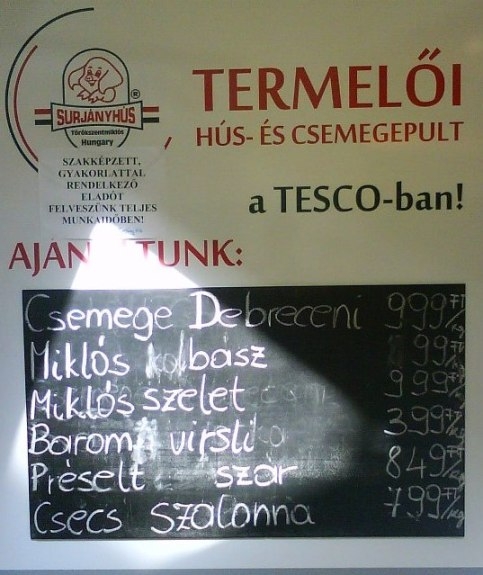 SURJÁNYHÚS ®
Törökszentmiklós
Hungary
TERMELŐI
HÚS- ÉS CSEMEGEPULT
SZAKKÉPZETT,
GYAKORLATTAL
RENDELKEZŐ
ELADÓT
FELVESZÜNK TELJES
MUNKAIDŐBEN!
a TESCO-ban!
AJÁNLATUNK:
Csemege Debreceni 999 FT/kg
Miklós kolbasz 899 FT/kg
Miklós szelet 999 FT/kg
Barom virsli 399 FT/kg
Préselt szar 849 FT/kg
Csécs Szalonna 799 FT/kg